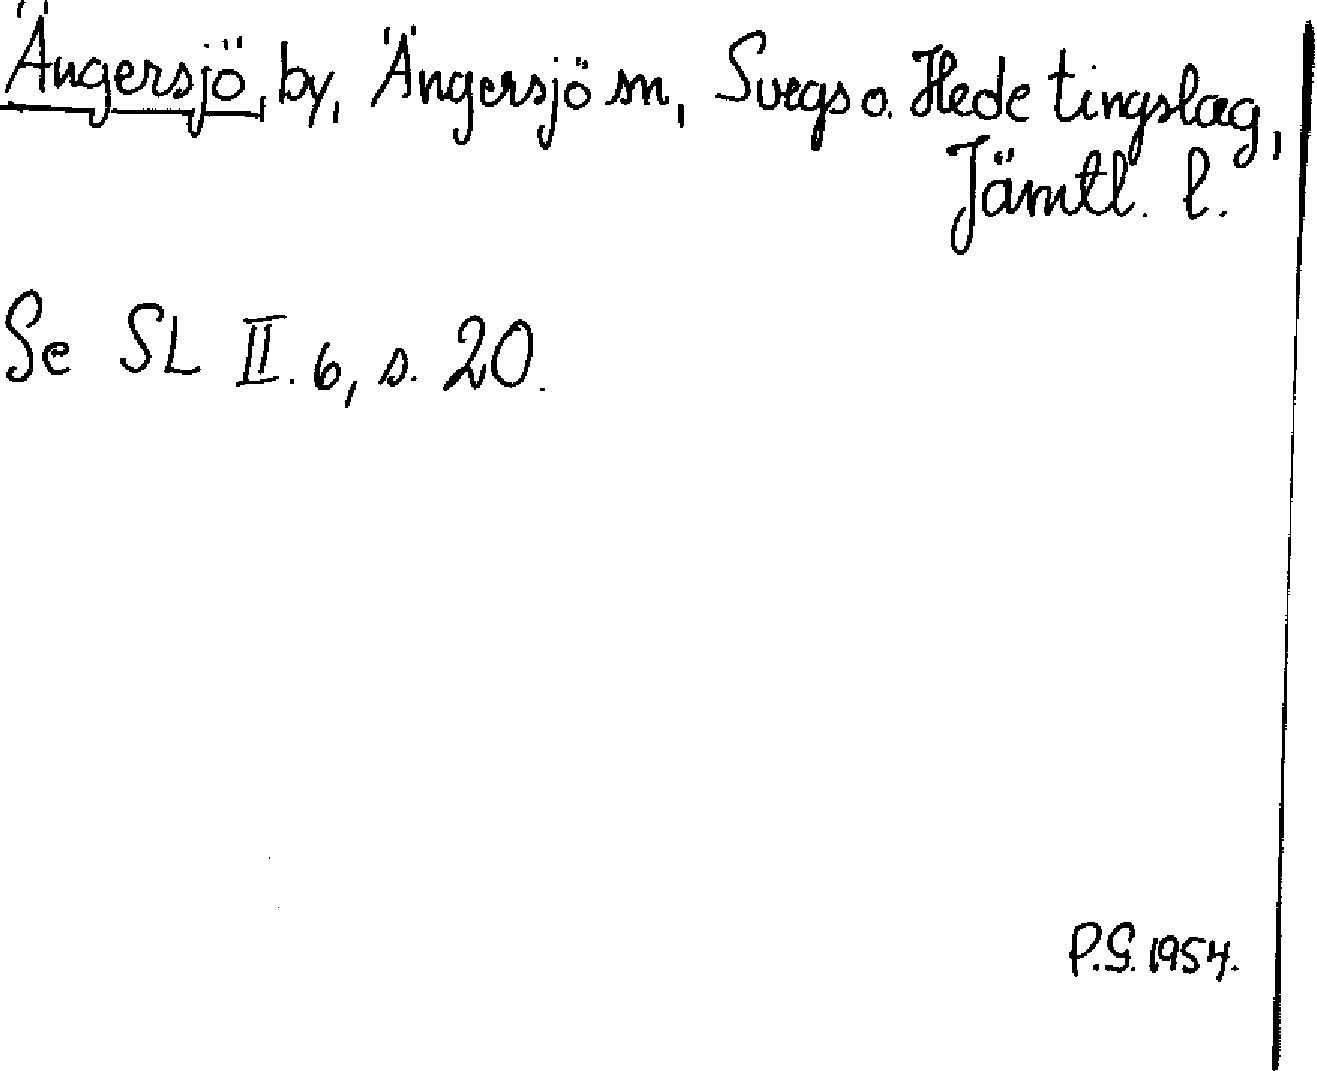 Ängersjö, by, Ängersjö sn, Svegs o. Hede tingslag,
Jämtl. l.
Se SL II. 6, s. 20.
P.G. 1954.